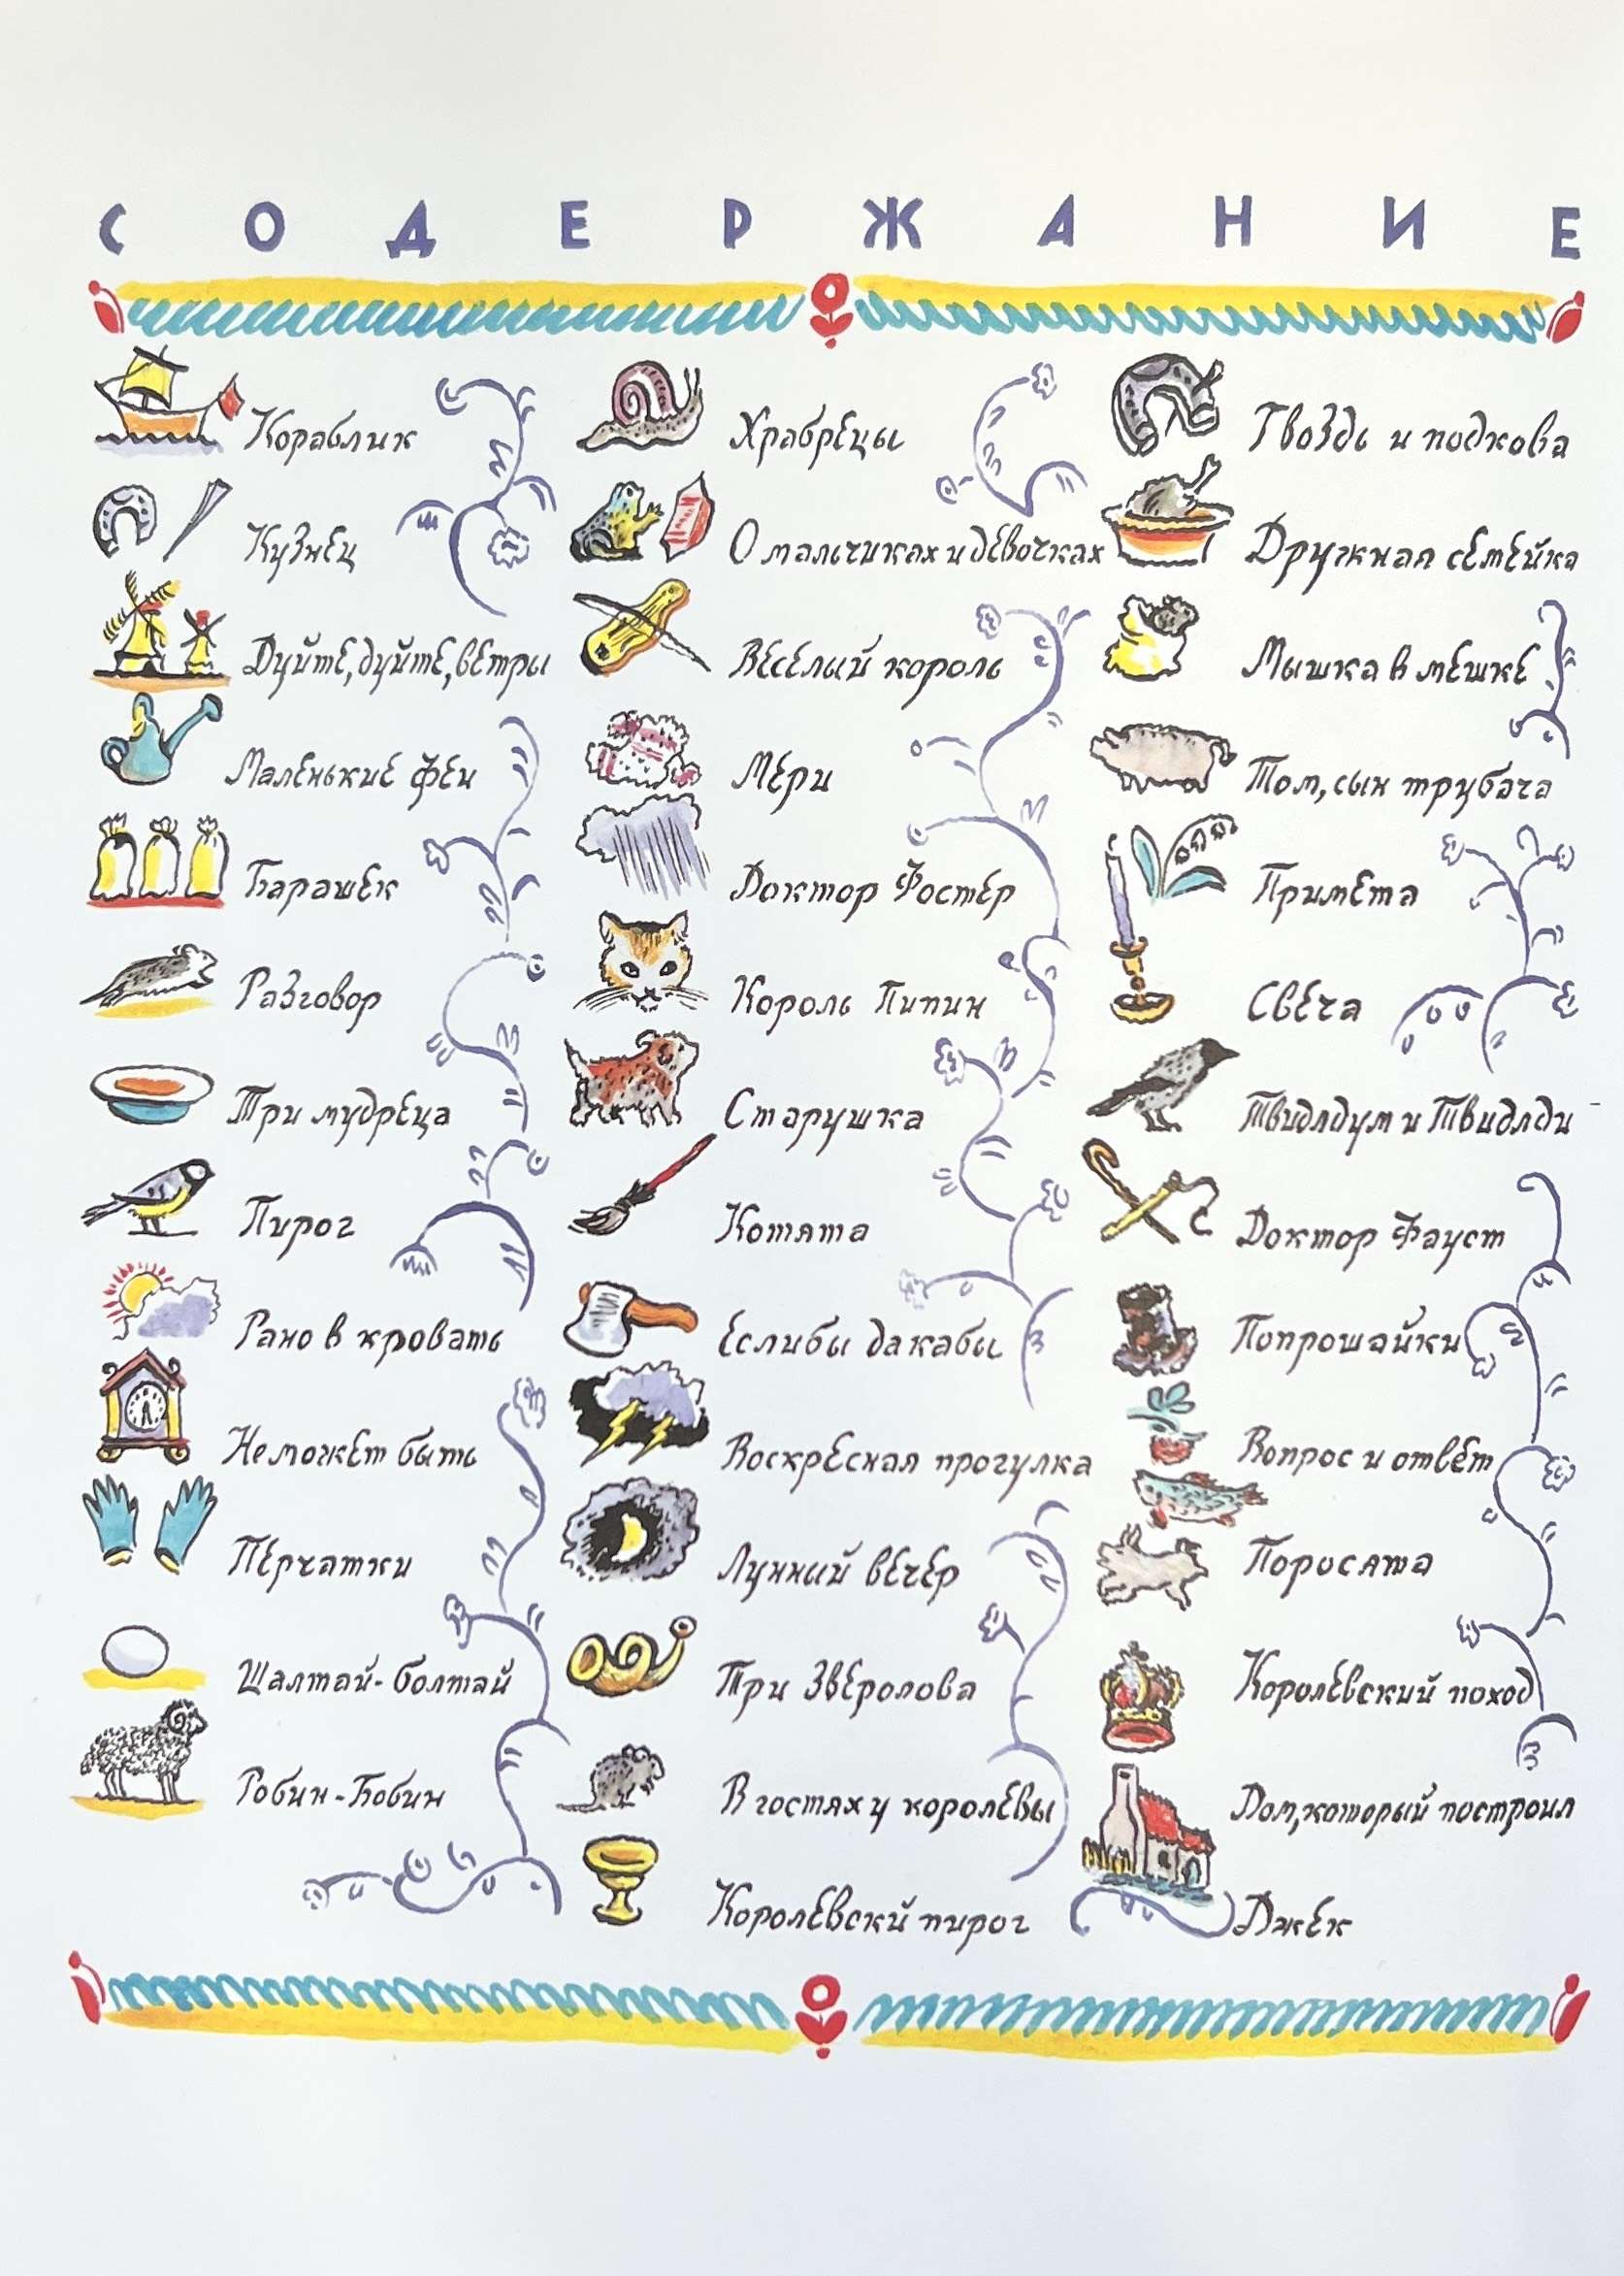 СОДЕРЖАНИЕ
Кораблик
Кузнец
Дуйте, дуйте, ветры
Маленькие феи
Барашек
Разговор
Три мудреца
Пирог
Рано в кровать
Не может быть
Перчатки
Шалтай-болтай
Робин-Бобин
Храбрецы
О мальчиках и девочках
Веселый король
Мери
Доктор Фостер
Король Пипин
Старушка
Котята
Если бы да кабы
Воскресная прогулка
Лунный вечер
Три зверолова
В гостях у королевы
Королевский пирог
Гвоздь и подкова
Дружная семейка
Мышка в мешке
Том, сын трубача
Примета
Свеча
Твидлдум и Твидлди
Доктор Фауст
Попрошайки
Вопрос и ответ
Поросята
Королевский поход
Дом, который построил
Джек